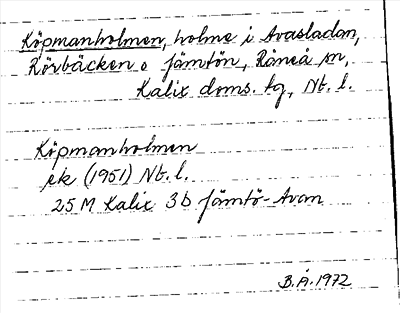 Köpmanholmen, holme i Avasladan,
Rörbäcken o Jämtön, Råneå sn,
Kalix doms. tg, Nb. l.
Köpmanholmen
ek (1951) Nb. l.
25 M Kalix 3b Jämtö-Avan
B.Å. 1972